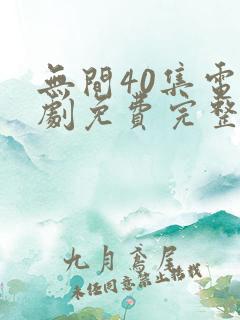 無間40集電
劇免費完整
九月鸢尾
未经同意禁止转载